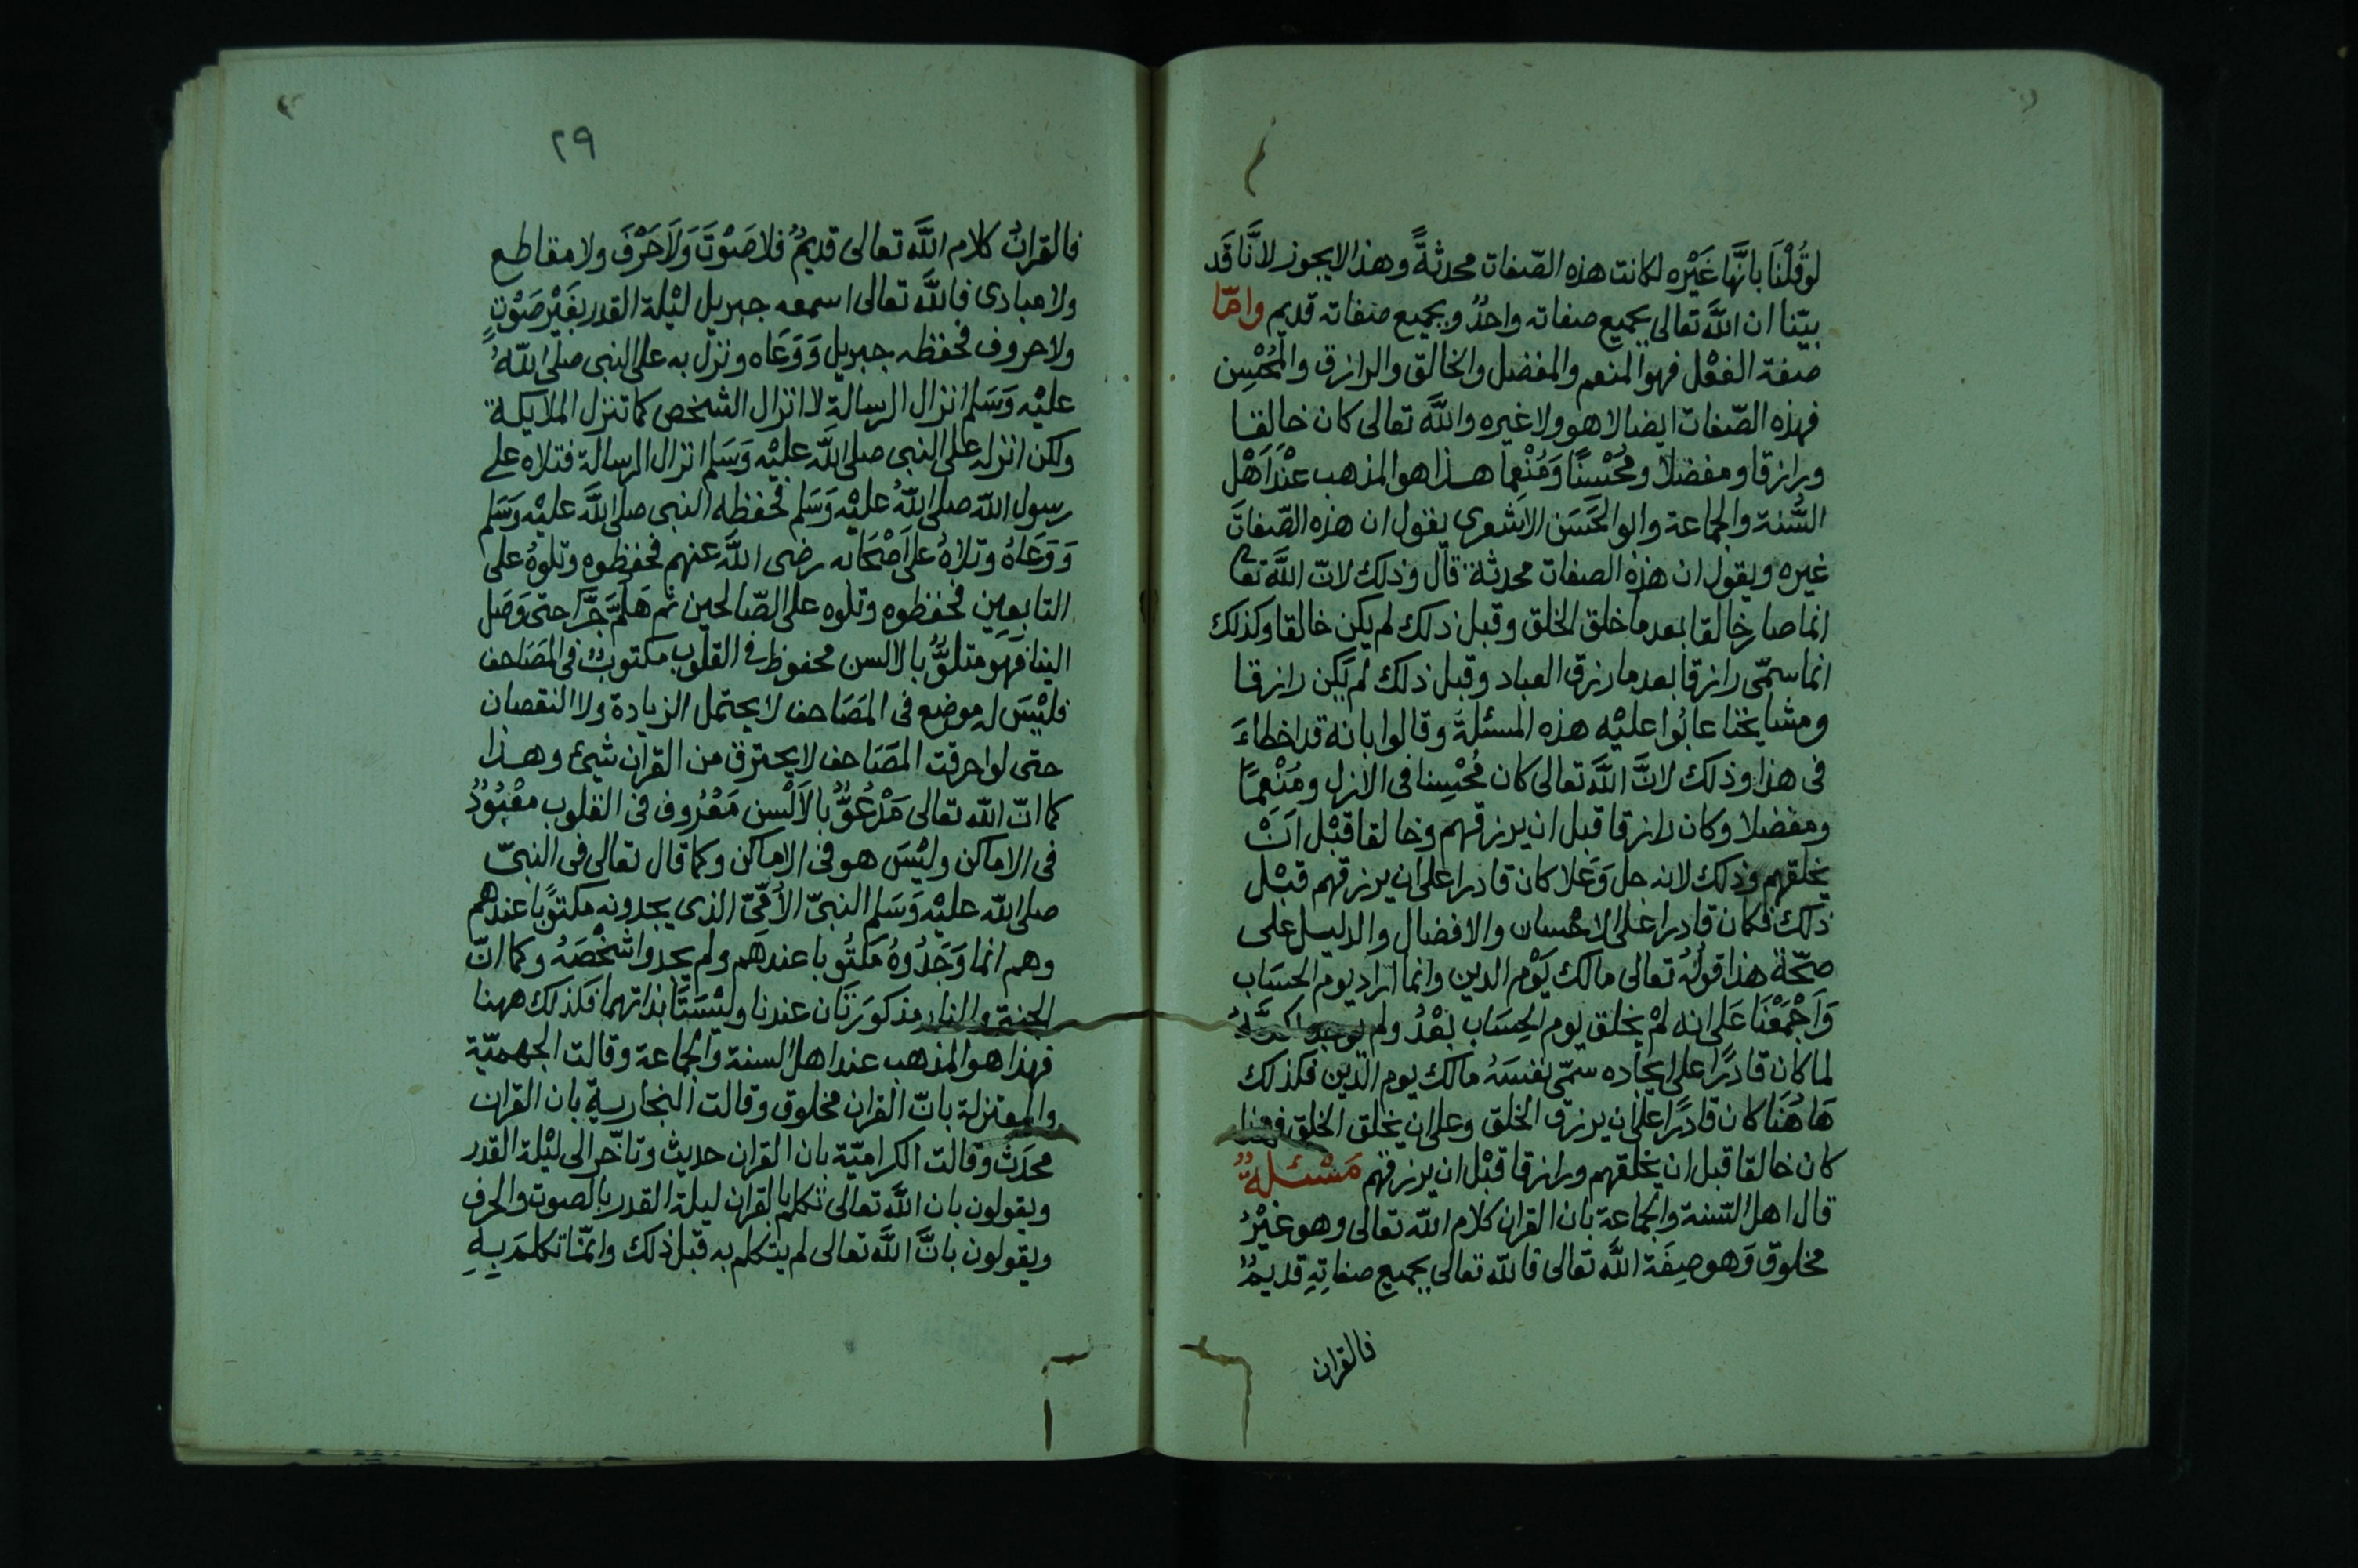 لَوْ قُلْنَا بانَّهَا غَيْره لكانت هذه الصّفات محدثةً وهذا لايجوز لانَّا قَد
بيّنا ان اللَّه تعالى بجميع صفاته واحدٌ وبجميع صفاته قديم وامّا
صفة الفعْل فهو المنعم والمفضل والخالق والرازق والمُحْسِن
فهذه الصّفات ايضا لاهو ولاغيره واللَّه تعالى كان خالقا
ورازقا ومفضلا ومُحْسِنًا وَمُنْعِما هذا هو المذهب عنْدَ اَهْل
السُّنة والجماعة وابو الحَسَن الاشعرى يقول ان هذه الصّفات
غيره ويقول ان هذه الصفات محدثة قال وذلك لانّ اللَّه تعا
انما صار خالقا بعد ماخلق الخلق وقبل ذلك لم يكن خالقا وكذلك
انما سمّى رازقا بعد مارزق العباد وقبل ذلك لم يكن رازقا
ومشايخنا عابُوا عليْه هذه المسئلة وقالوا بانه قد اخطاءَ
فى هذا وذلك لانَّ اللَّه تعالى كان مُحْسِنا فى الازل ومُنْعِمًا
ومفضلا وكان رازقا قبل ان يرزقهم وخالقا قبْل اَنْ
يخلقهم وذلك لانه جل وَعَلا كان قادرا على ان يرزقهم قبْل
ذلك فكان قادرا على الاحسان والافضال والدليل على
صحّة هذا قولُهُ تعالى مالك يَوْم الدين وانما اراد يوم الحسَاب
وَاَجْمَعْنَا عَلى انه لمْ يخلق يوم الحِسَاب بَعْدُ ولم يوجد لكنَّهُ
لما كان قادرًا على ايجاده سمّى نفسَهُ مالك يوم الدّين فكذلك
هَاهُنَا كان قادرًا على ان يرزق الخلق وعلى ان يخلق الخلق فههنا
كان خالقا قبل ان يخلقهم ورازقا قبْل ان يرزقهم مَسْئلةٌ
قال اهل السّنة والجماعة بان القران كلام اللّه تعالى وهو غيْرُ
مخلوق وَهو صِفَة اللَّه تعالى فاللّه تعالى بجميع صفاتِهِ قديمٌ
فالقران
٢٩
فالقرانُ كلام اللَّه تعالى قديمٌ فلا صَوْتَ وَلَا حَرْفَ ولا مقاطع
ولا مبادى فاللَّه تعالى اسمعه جبريل ليْلة القدر بغَيْر صَوْتٍ
ولاحروف فحفظه جبريل وَوَعَاه ونزل به على النبى صلى اللّهُ
عليْه وَسَلم انزال الرسالة لا انزال الشخص كما تنزل الملايكة
ولكن انزله على النبى صلى اللّه عليْه وَسَلم انزال الرسالة فتلاه على
رسول اللّه صلى اللّهُ عليْه وَسَلم فحفظه النبى صلى اللَّه عليْه وَسَلم
وَوَعَاهُ وتلاهُ على اَصْحَابه رضى اللَّه عنهم فحفظوه وتلوهُ على
التابعين فحفظوه وتلوه على الصّالحين ثم هَلُمَّ جَرَّا حتى وَصَل
الينا فهو متلوٌّ بالالسن محفوظ فى القلوب مكتوبٌ فى المصَاحف
فليْسَ له موضع فى المصَاحف لايحتمل الزيادة ولا النقصان
حتى لو احرقت المصَاحف لايحترق من القران شيئ وهذا
كما انّ اللّه تعالى مَدْعُوٌّ بالاَلْسن مَعْرُوف فى القلوب معْبُوْدٌ
فى الاماكن وليْسَ هو فى الاماكن وكما قال تعالى فى النبىّ
صلى اللّه عليْه وَسَلم النبىّ الاُمّىّ الذى يجدونه مكتوبًا عندهم
وهم انما وَجَدُوهُ مَكتُوبا عندهم ولم يجدوا شخْصَهُ وكما انّ
الجنة والنار مذكورَتَان عندنا وليْسَتَا بذاتهما فكذلك ههنا
فهذا هو المذهب عند اهل السنة والجماعة وقالت الجهميّة
والمعتزلة بانّ القران مخلوق وقالت النجارية بان القران
محدَث وقالت الكراميّة بان القران حديث وتاخّر الى ليْلة القدر
ويقولون بان اللَّه تعالى تكلم بالقران ليلة القدر بالصوت والحرف
ويقولون بانَّ اللَّه تعالى لم يتكلم به قبل ذلك وانّما تكلمَ بِهِ